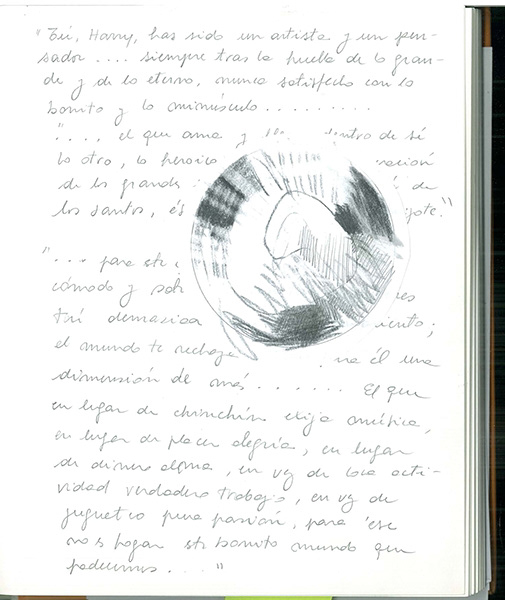 "Tú, Harry, has sido un artista y un pen-
sador .... siempre tras la huella de lo gran-
de y de lo eterno, nunca satisfecho con lo
bonito y lo minúsculo .........
".... el que ama y dentro de sí
lo otro, lo heroico
de los grandes de
los santos, és ijote."
"... para
cómodo y
tú demasia iento;
el mundo te rechaza na él una
dimensión de más ...... El que
en lugar de chinchín elija música,
en lugar de placer alegría, en lugar
de dinero alma, en vez de loca acti-
vidad verdadero trabajo, en vez de
jugueteo pura pasión, para ése
no s hogar bonito mundo que
padecemos ...."